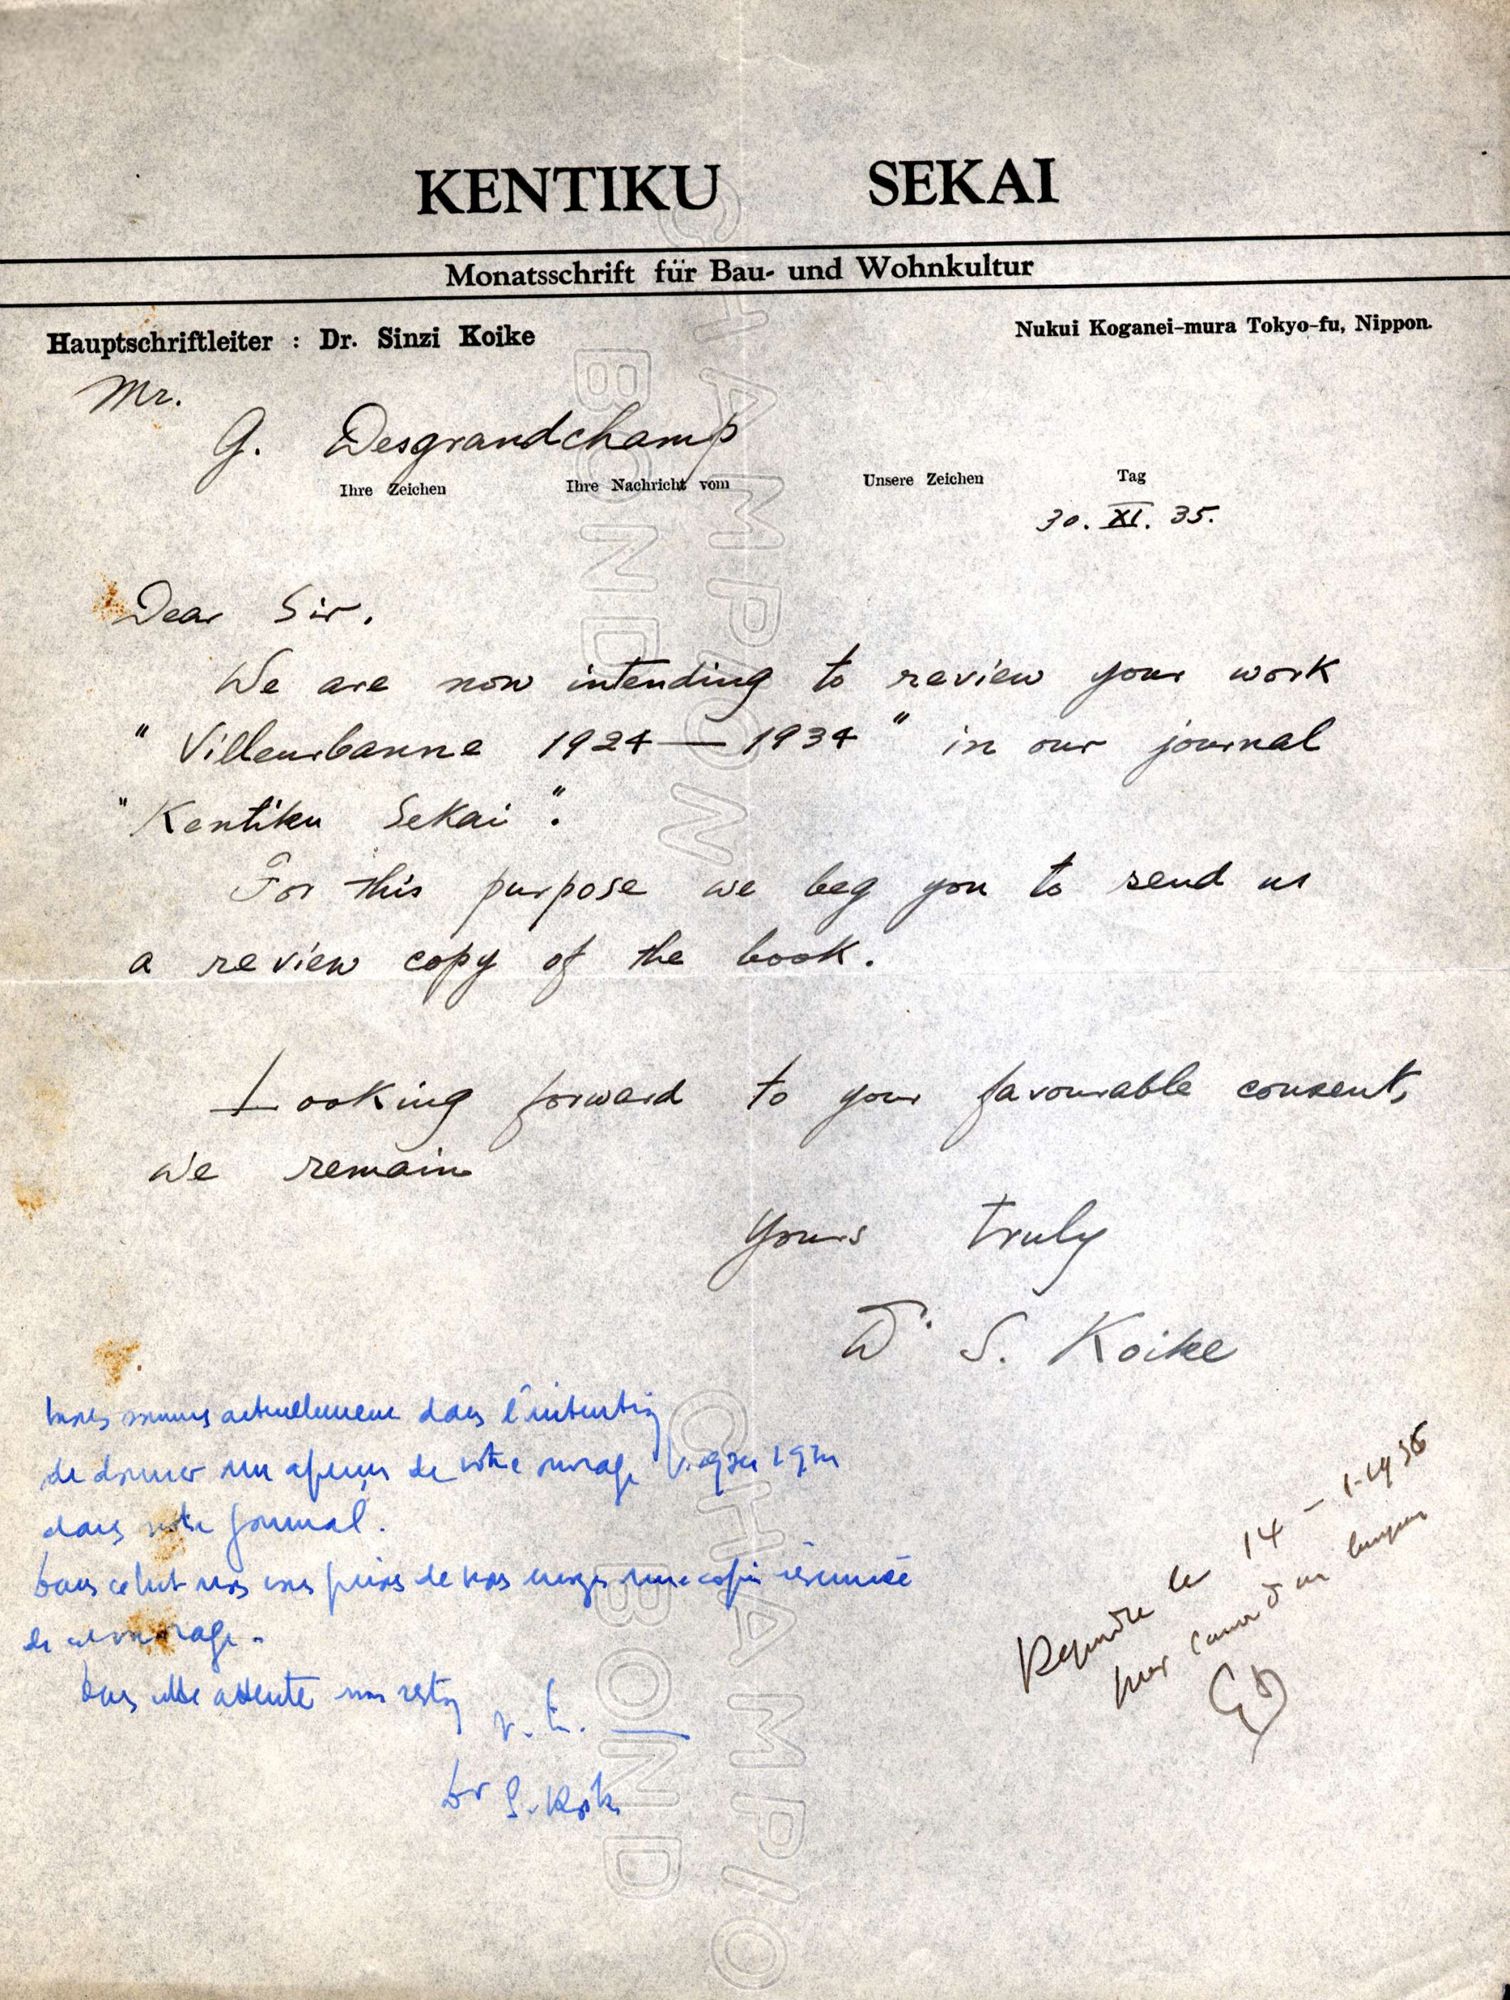 KENTIKU SEKAI
Monatsschrift für Bau- und Wohnkultur
Hauptschriftleiter : Dr. Sinzi Koike
Nukui Koganei-mura Tokyo-fu, Nippon.
Mr.
G. Desgrandchamp
Ihre Zeichen Ihre Nachricht vom Unsere Zeichen Tag
30. XI. 35.
Dear Sir.
We are now intending to review your work
"Villeurbanne 1924—1934" in our journal
"Kentiku Sekai".
For this purpose we beg you to send us
a review copy of the book.
Looking forward to your favourable consent,
we remain
Yours truly
Dr. S. Koike
Nous sommes actuellement dans l'intention
de donner un aperçu de votre ouvrage
dans notre journal.
Dans ce but nous vous prions de nous une copie
de ouvrage.
Dans cette attente nous
Dr S. Koike
Répondre le 14 - 1-1936
par
GD
CHAMPION
BOND
CHAMPIO
BOND